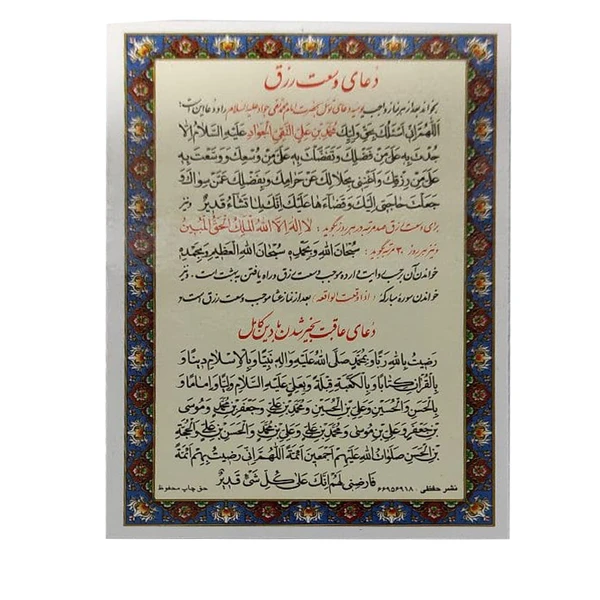 دعای وسعت رزق
بخواند بعد از هر نماز واجب و سه دعای توسل بحضرت امام محمد تقی جواد علیه السلام را و دعا این است:
اَللّهُمَّ اِنّی اَسْئَلُکَ بِحَقِّ وَلِیِّکَ مُحَمَّدِ بْنِ عَلِیٍّ التَّقِیِّ الْجَوادِ عَلَیْهِ السَّلامُ اِلاّ
جُدْتَ بِهِ عَلَیَّ مِنْ فَضْلِکَ وَ تَفَضَّلْتَ بِهِ عَلَیَّ مِنْ وُسْعِکَ وَ وَسَّعْتَ بِهِ
عَلَیَّ مِنْ رِزْقِکَ وَ اَغْنِنی بِحَلالِکَ عَنْ حَرامِکَ وَ بِفَضْلِکَ عَمَّنْ سِواکَ وَ
جَعَلْتَ حاجَتی اِلَیْکَ وَ قَضاءَها عَلَیْکَ اِنَّکَ لِما تَشاءُ قَدیرٌ و نیز
برای وسعت رزق صد مرتبه در هر روز بگوید: لا اِلهَ اِلاَّ اللهُ الْمَلِکُ الْحَقُّ الْمُبینُ
و نیز هر روز ۳۰ مرتبه بگوید: سُبْحانَ اللهِ وَ بِحَمْدِهِ سُبْحانَ اللهِ الْعَظیمِ وَ بِحَمْدِهِ
خواندن آن بر حسب روایت وارده موجب وسعت رزق و راه یافتن به بهشت است . و نیز
خواندن سورهٔ مبارکه (اذا وقعت الواقعه) بعد از نماز عشا موجب وسعت رزق است و
دعای عاقبت بخیر شدن با دین کامل
رَضیتُ بِاللهِ رَبّاً وَ بِمُحَمَّدٍ صَلَّی اللهُ عَلَیْهِ وَ الِهِ نَبِیّاً وَ بِالْاِسْلامِ دیناً وَ
بِالْقُرْآنِ کِتاباً وَ بِالْکَعْبَةِ قِبْلَةً وَ بِعَلِیٍّ عَلَیْهِ السَّلامُ وَلِیّاً وَ اِماماً وَ
بِالْحَسَنِ وَ الْحُسَیْنِ وَ عَلِیِّ بْنِ الْحُسَیْنِ وَ مُحَمَّدِ بْنِ عَلِیٍّ وَ جَعْفَرِ بْنِ مُحَمَّدٍ وَ مُوسَی
بْنِ جَعْفَرٍ وَ عَلِیِّ بْنِ مُوسی وَ مُحَمَّدِ بْنِ عَلِیٍّ وَ عَلِیِّ بْنِ مُحَمَّدٍ وَ الْحَسَنِ بْنِ عَلِیٍّ وَ الْحُجَّةِ
بْنِ الْحَسَنِ صَلَواتُ اللهِ عَلَیْهِمْ اَجْمَعینَ اَئِمَّةً اَللّهُمَّ اِنّی رَضیتُ بِهِمْ اَئِمَّةً
فَارْضِنی لَهُمْ اِنَّکَ عَلی کُلِّ شَیْءٍ قَدیرٌ
نشر حفظی - ۶۶۹۵۶۹۱۸
حق چاپ محفوظ